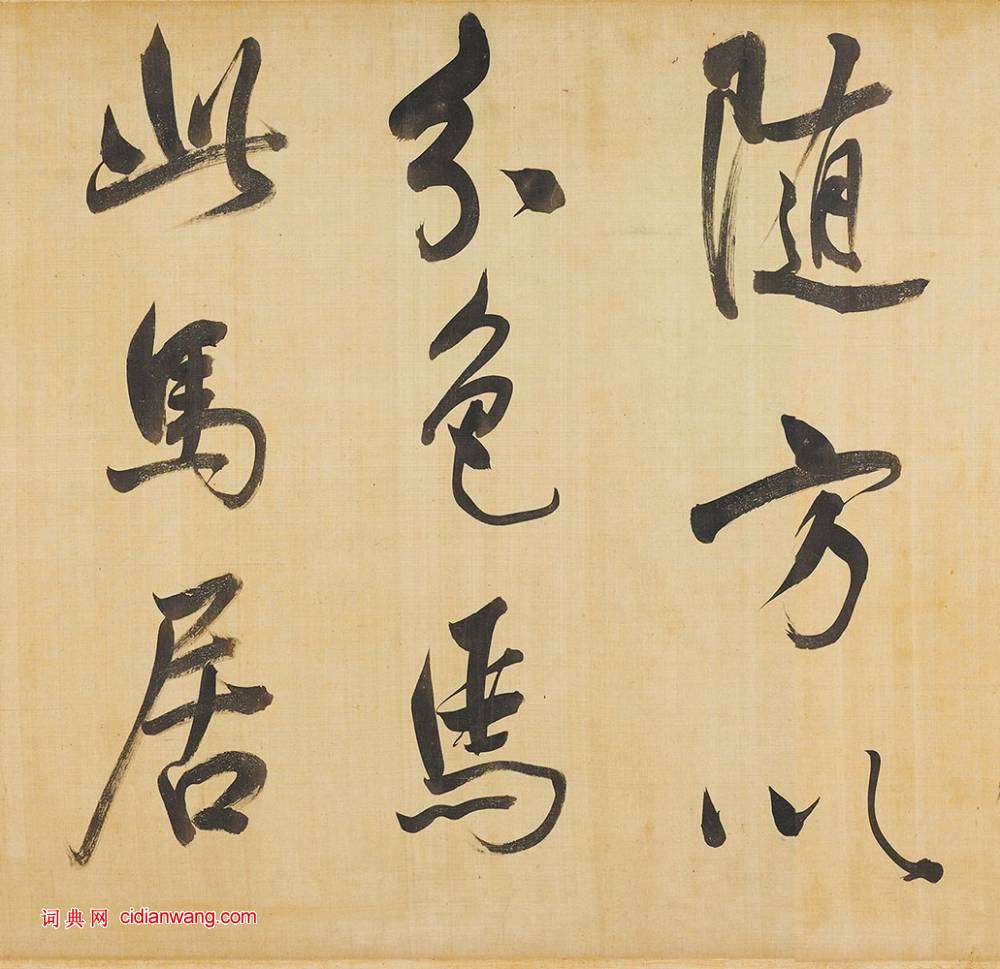 随方以
分色馬
此馬居
词典网 cidianwang.com